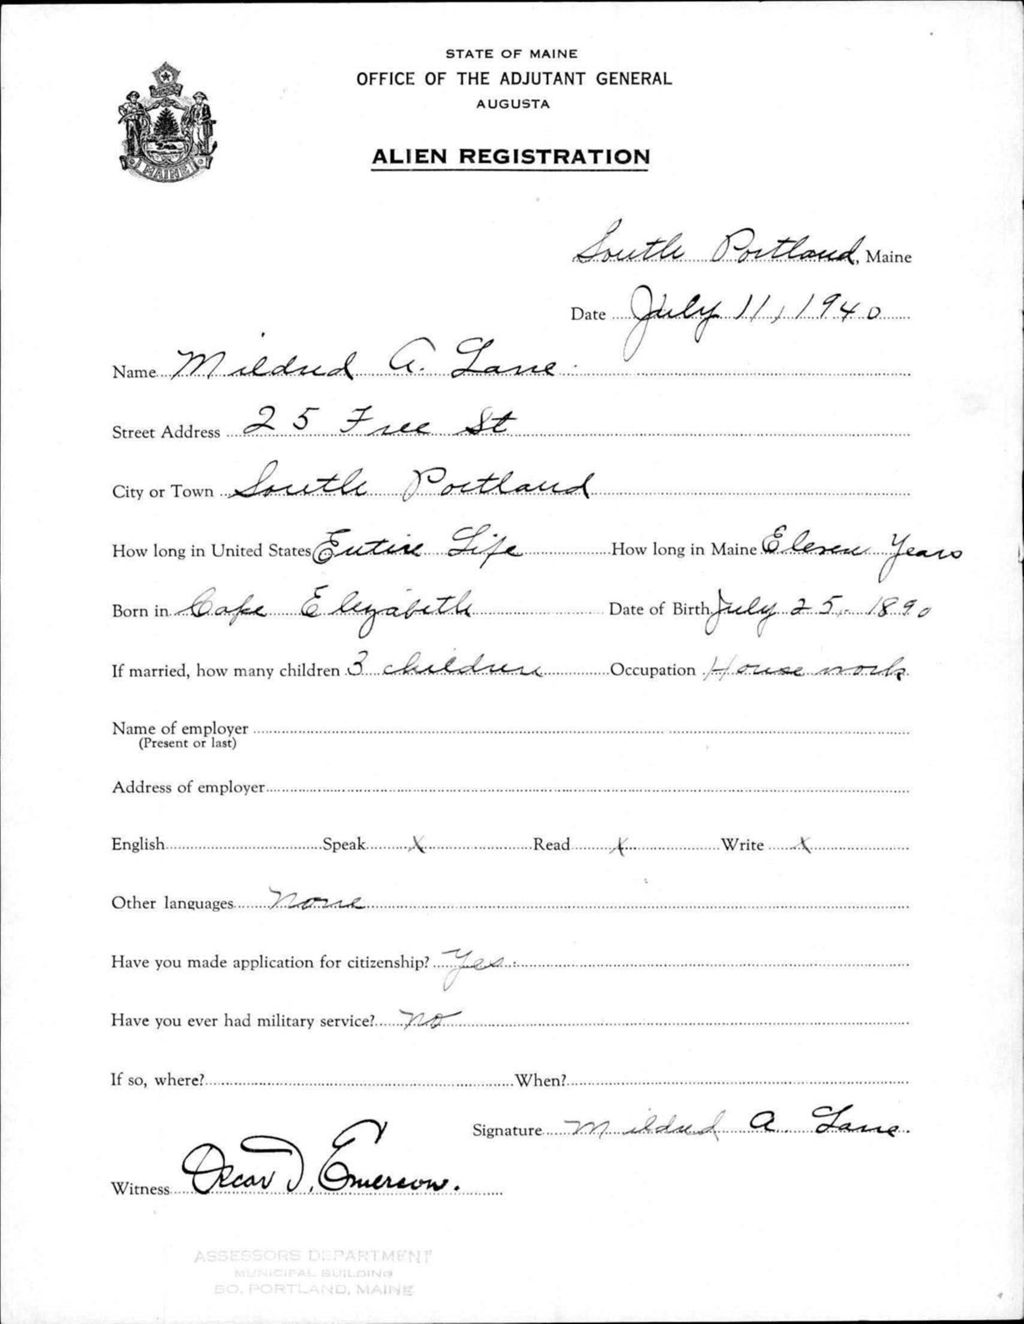 STATE OF MAINE
OFFICE OF THE ADJUTANT GENERAL
AUGUSTA
MAINE
ALIEN REGISTRATION
South Portland, Maine
Date July 11, 1940
Name Mildred A. Lane
Street Address 25 Free St
City or Town South Portland
How long in United States Entire Life How long in Maine Eleven Years
Born in Cape Elizabeth Date of Birth July 25, 1890
If married, how many children 3 children Occupation House work
Name of employer
(Present or last)
Address of employer
English Speak X Read X Write X
Other languages None
Have you made application for citizenship? Yes
Have you ever had military service? No
If so, where? When?
Signature Mildred A. Lane.
Witness Oscar D. Emerson.
ASSESSORS DEPARTMENT
MUNICIPAL BUILDING
SO. PORTLAND, MAINE